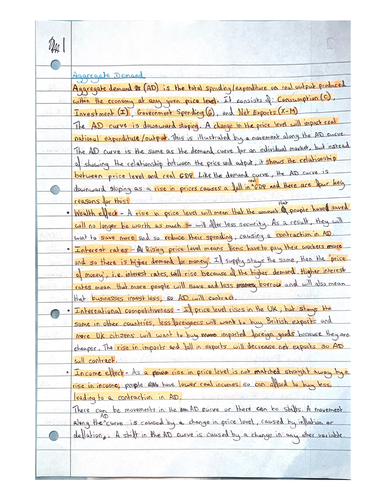 Aggregate Demand
Aggregate demand (AD) is the total spending/expenditure on real output produced
within the economy at any given price level. It consists of: Consumption (C),
Investment (I), Government Spending (G), and Net Exports (X-M)
The AD curve is downward sloping. A change in the price level will impact real
national expenditure/output. This is illustrated by a movement along the AD curve.
The AD curve is the same as the demand curve for an individual market, but instead
of showing the relationship between the price and output, it shows the relationship
between price level and real GDP. Like the demand curve, the AD curve is
downward sloping as a rise in prices causes a fall in real GDP and there are four key
reasons for this:
• Wealth effect - A rise in price level will mean that the amount people have saved
will no longer be worth as much so will offer less security. As a result, they will
want to save more and so reduce their spending, causing a contraction in AD
• Interest rates - A rising price level means firms have to pay their workers more
and so there is higher demand for money. If supply stays the same, then the 'price
of money', i.e. interest rates, will rise because of the higher demand. Higher interest
rates mean that more people will save and less borrow and will also mean
that businesses invest less, so AD will contract.
• International competitiveness - If price level rises in the UK, but stays the
same in other countries, less foreigners will want to buy British exports and
more UK citizens will want to buy imported foreign goods because they are
cheaper. The rise in imports and fall in exports will decrease net exports so AD
will contract.
• Income effect - As a rise in price level is not matched straight away by a
rise in income, people have lower real incomes so can afford to buy less,
leading to a contraction in AD.
There can be movements in the AD curve or there can be shifts. A movement
along the curve is caused by a change in price level, caused by inflation or
deflation. A shift in the AD curve is caused by a change in any other variable